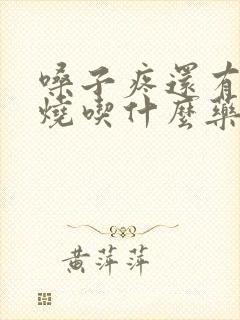 嗓子疼還有
燒喫什麼藥
黃萍萍